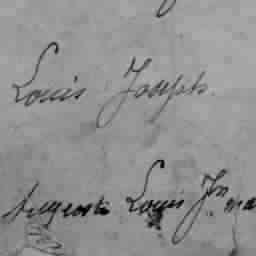 Louis Joseph.
Auguste Louis Jn